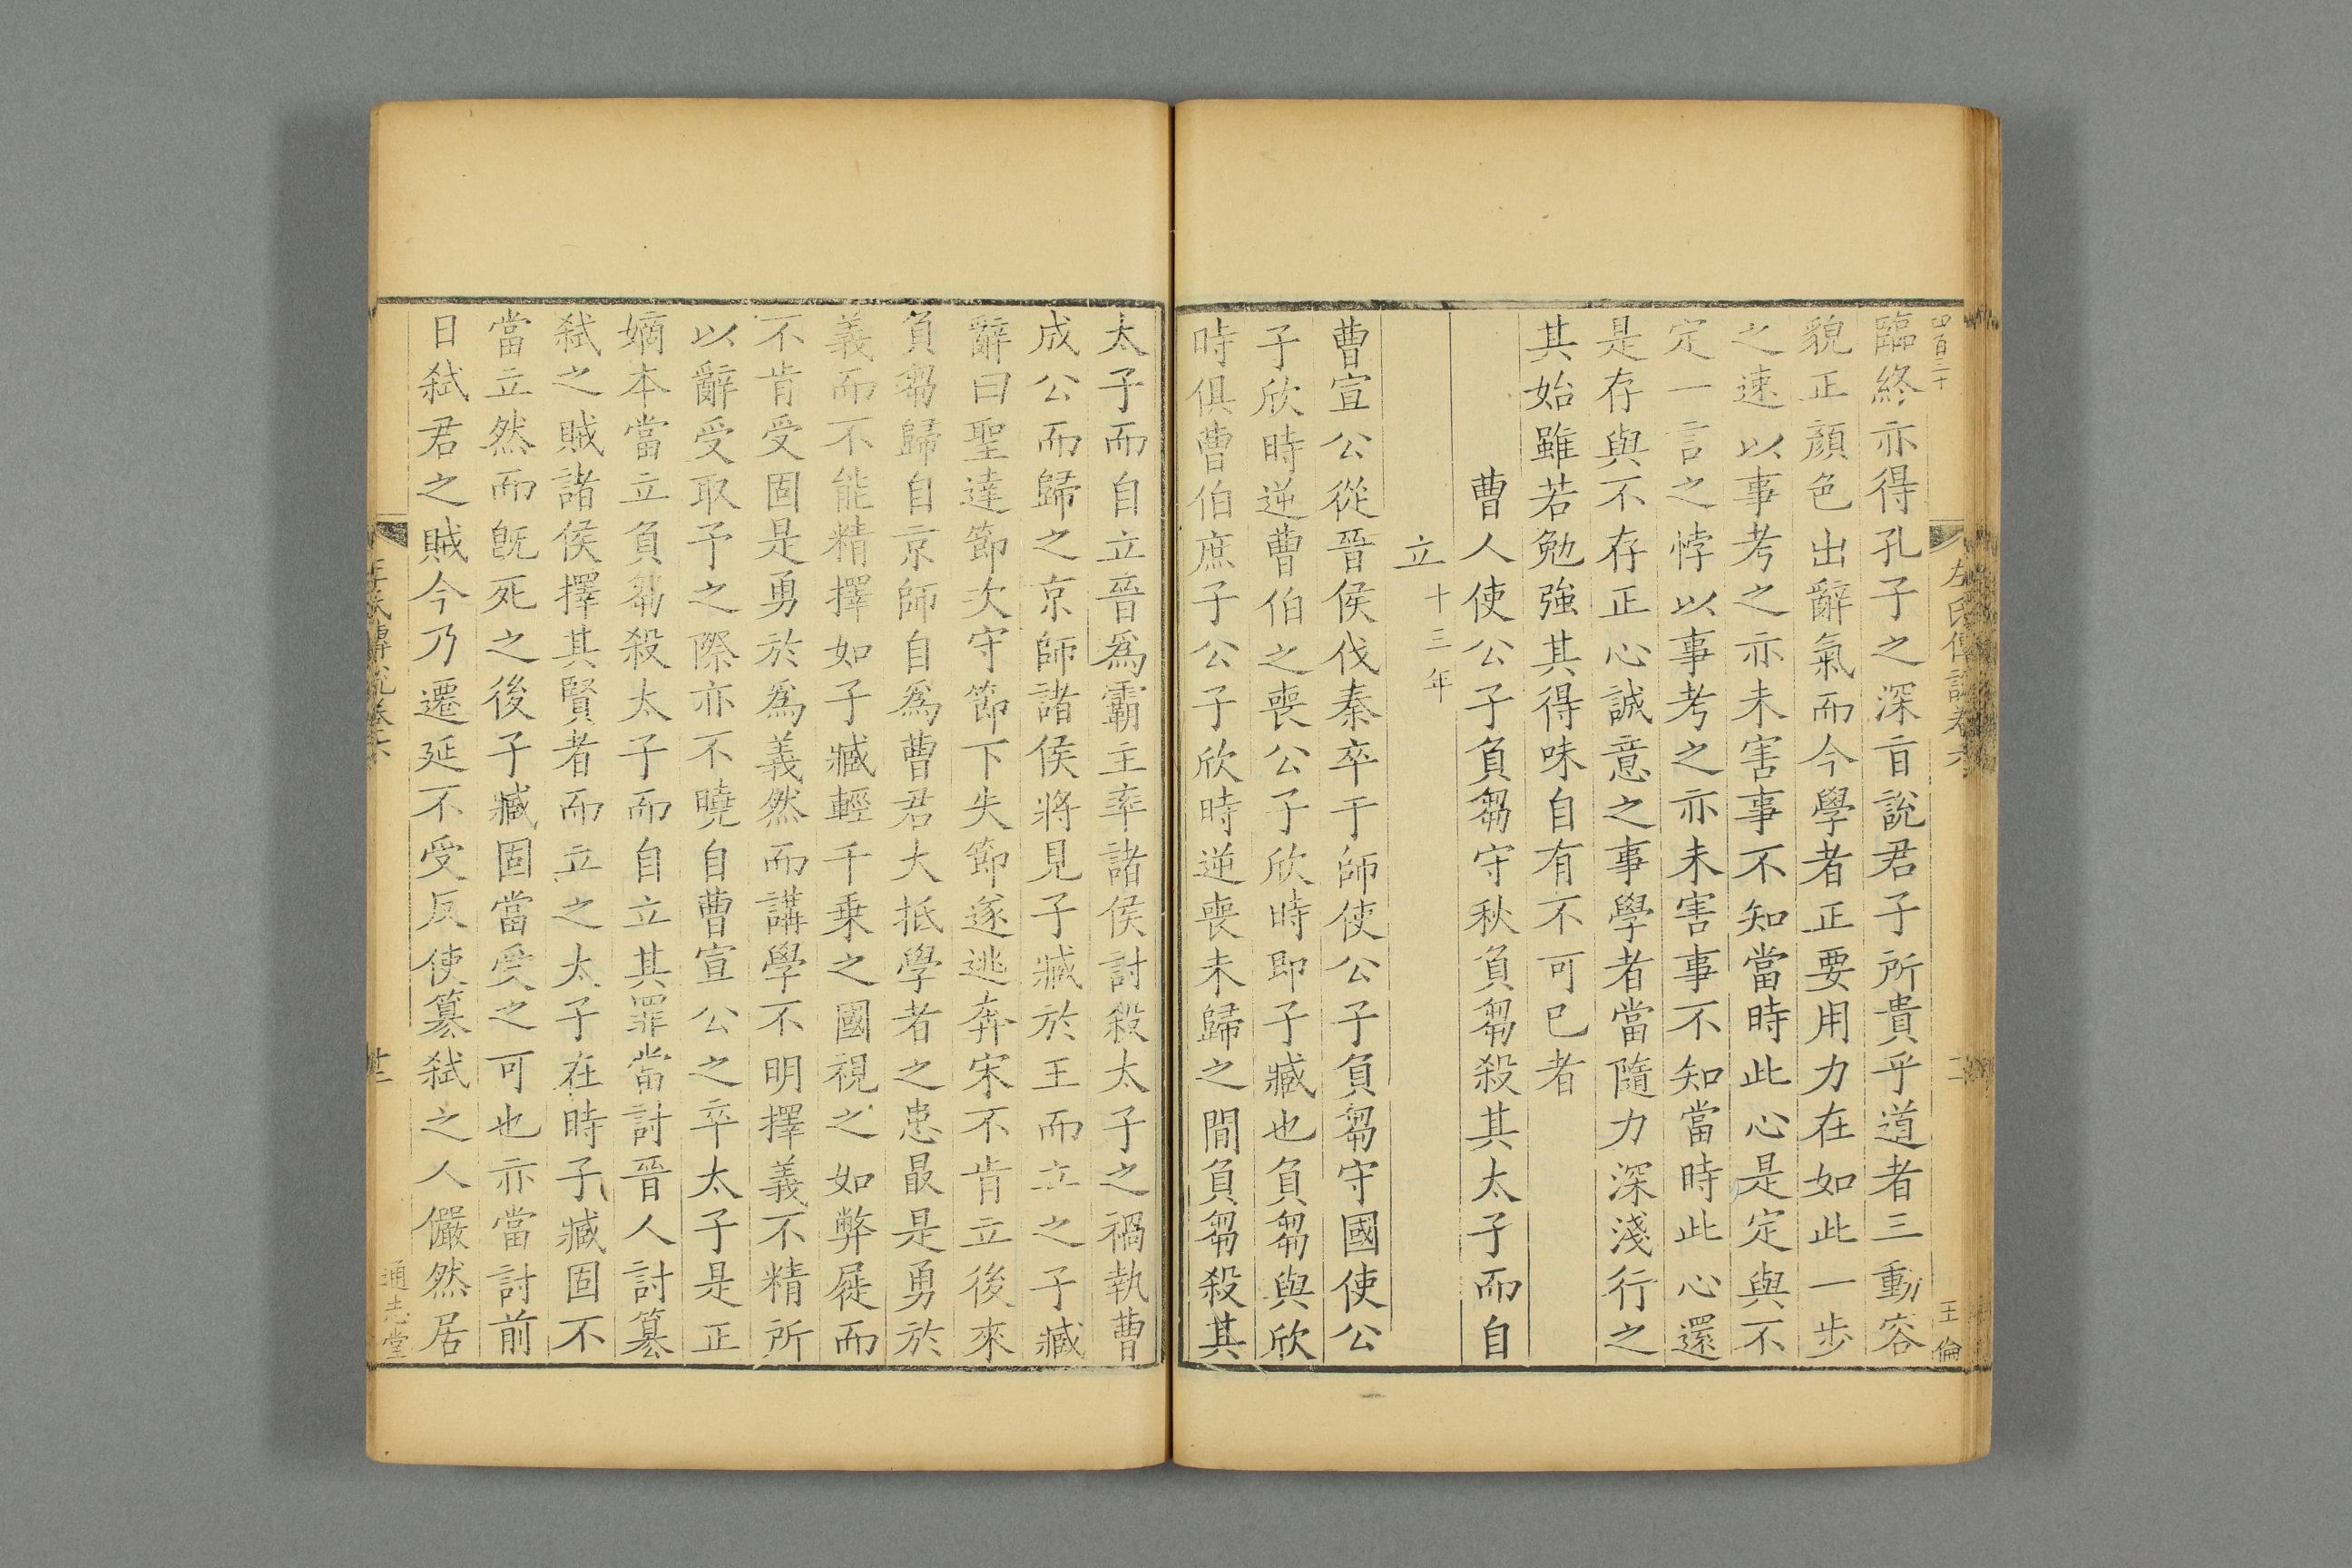 四百三十
左氏傳說卷六
二
王倫
臨終亦得孔子之深旨說君子所貴乎道者三動容
貌正顏色出辭氣而今學者正要用力在如此一步
之速以事考之亦未害事不知當時此心是定與不
定一言之悖以事考之亦未害事不知當時此心還
是存與不存正心誠意之事學者當隨力深淺行之
其始雖若勉強其得味自有不可已者
曹人使公子負芻守秋負芻殺其太子而自
立十三年
曹宣公從晉侯伐秦卒于師使公子負芻守國使公
子欣時逆曹伯之喪公子欣時即子臧也負芻與欣
時俱曹伯庶子公子欣時逆喪未歸之間負芻殺其
太子而自立晉為霸主率諸侯討殺太子之禍執曹
成公而歸之京師諸侯將見子臧於王而立之子臧
辭曰聖達節次守節下失節遂逃奔宋不肯立後來
負芻歸自京師自為曹君大抵學者之患最是勇於
義而不能精擇如子臧輕千乗之國視之如弊屣而
不肯受固是勇於為義然而講學不明擇義不精所
以辭受取予之際亦不曉自曹宣公之卒太子是正
嫡本當立負芻殺太子而自立其罪當討晉人討簒
弒之賊諸侯擇其賢者而立之太子在時子臧固不
當立然而既死之後子臧固當受之可也亦當討前
日弒君之賊今乃遷延不受反使簒弒之人儼然居
左氏傳說卷六
通志堂